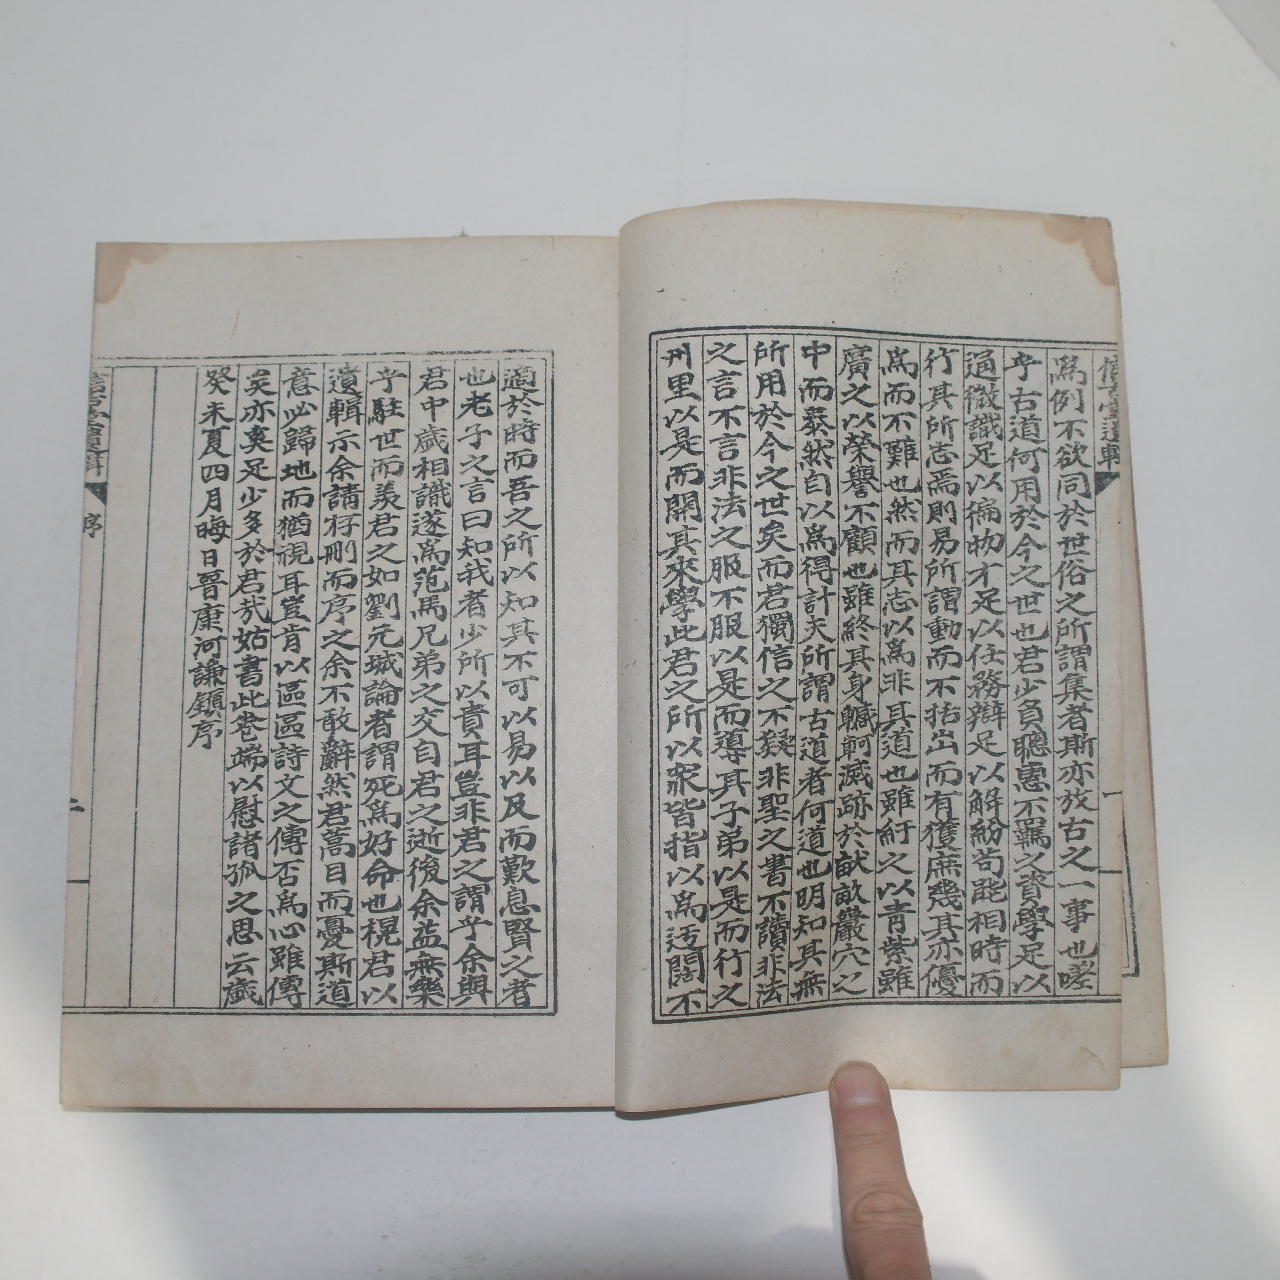 爲例不欲同於世俗之所謂集者斯亦放古之一事也嗟
乎古道何用於今之世也君少負聰憓不羈之資學足以
通微識足以徧物才足以任務辯足以解紛苟能相時而
行其所志焉則易所謂動而不括出而有獲庶幾其亦優
爲而不難也然而其志以爲非其道也雖紆之以靑紫雖
廣之以榮譽不顧也雖終其身轗軻滅跡於畎畝巖穴之
中而泰然自以爲得計夫所謂古道者何道也明知其無
所用於今之世矣而君獨信之不疑非聖之書不讀非法
之言不言非法之服不服以是而導其子弟以是而行之
州里以是而開其來學此君之所以衆皆指以爲迂闊不
適於時而吾之所以知其不可以易以及而歎息賢之者
也老子之言曰知我者少所以貴耳豈非君之謂乎余與
君中歲相識遂爲范馬兄弟之交自君之逝後余益無樂
乎駐世而羨君之如劉元城論者謂死爲好命也棍君以
遺輯示余請存刪而序之余不敢辭然君蒿目而憂斯道
意必歸地而猶視耳豈肯以區區詩文之傳否爲心雖傳
矣亦奚足少多於君哉姑書此卷端以慰諸孤之思云歲
癸未夏四月晦日晉康河謙鎭序
遺輯
序
二